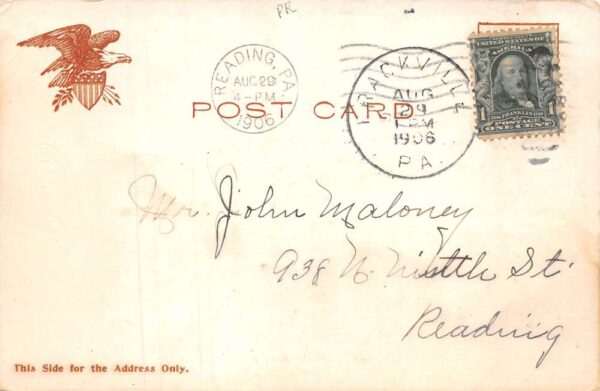 PR
READING, PA.
AUG 29
4-PM
1906
POST CARD
FRACKVILLE
AUG
29
1 PM
1906
PA.
UNITED STATES OF AMERICA
FRANKLIN
1 1
POSTAGE
ONE CENT
Mr. John Maloney
938 N. Ninth St.
Reading
This Side for the Address Only.